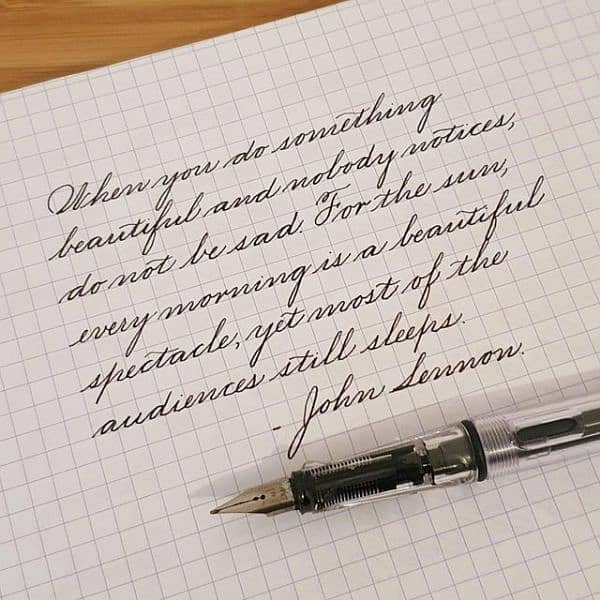 When you do something
beautiful and nobody notices,
do not be sad. For the sun,
every morning is a beautiful
spectacle, yet most of the
audiences still sleeps.
- John Lennon.